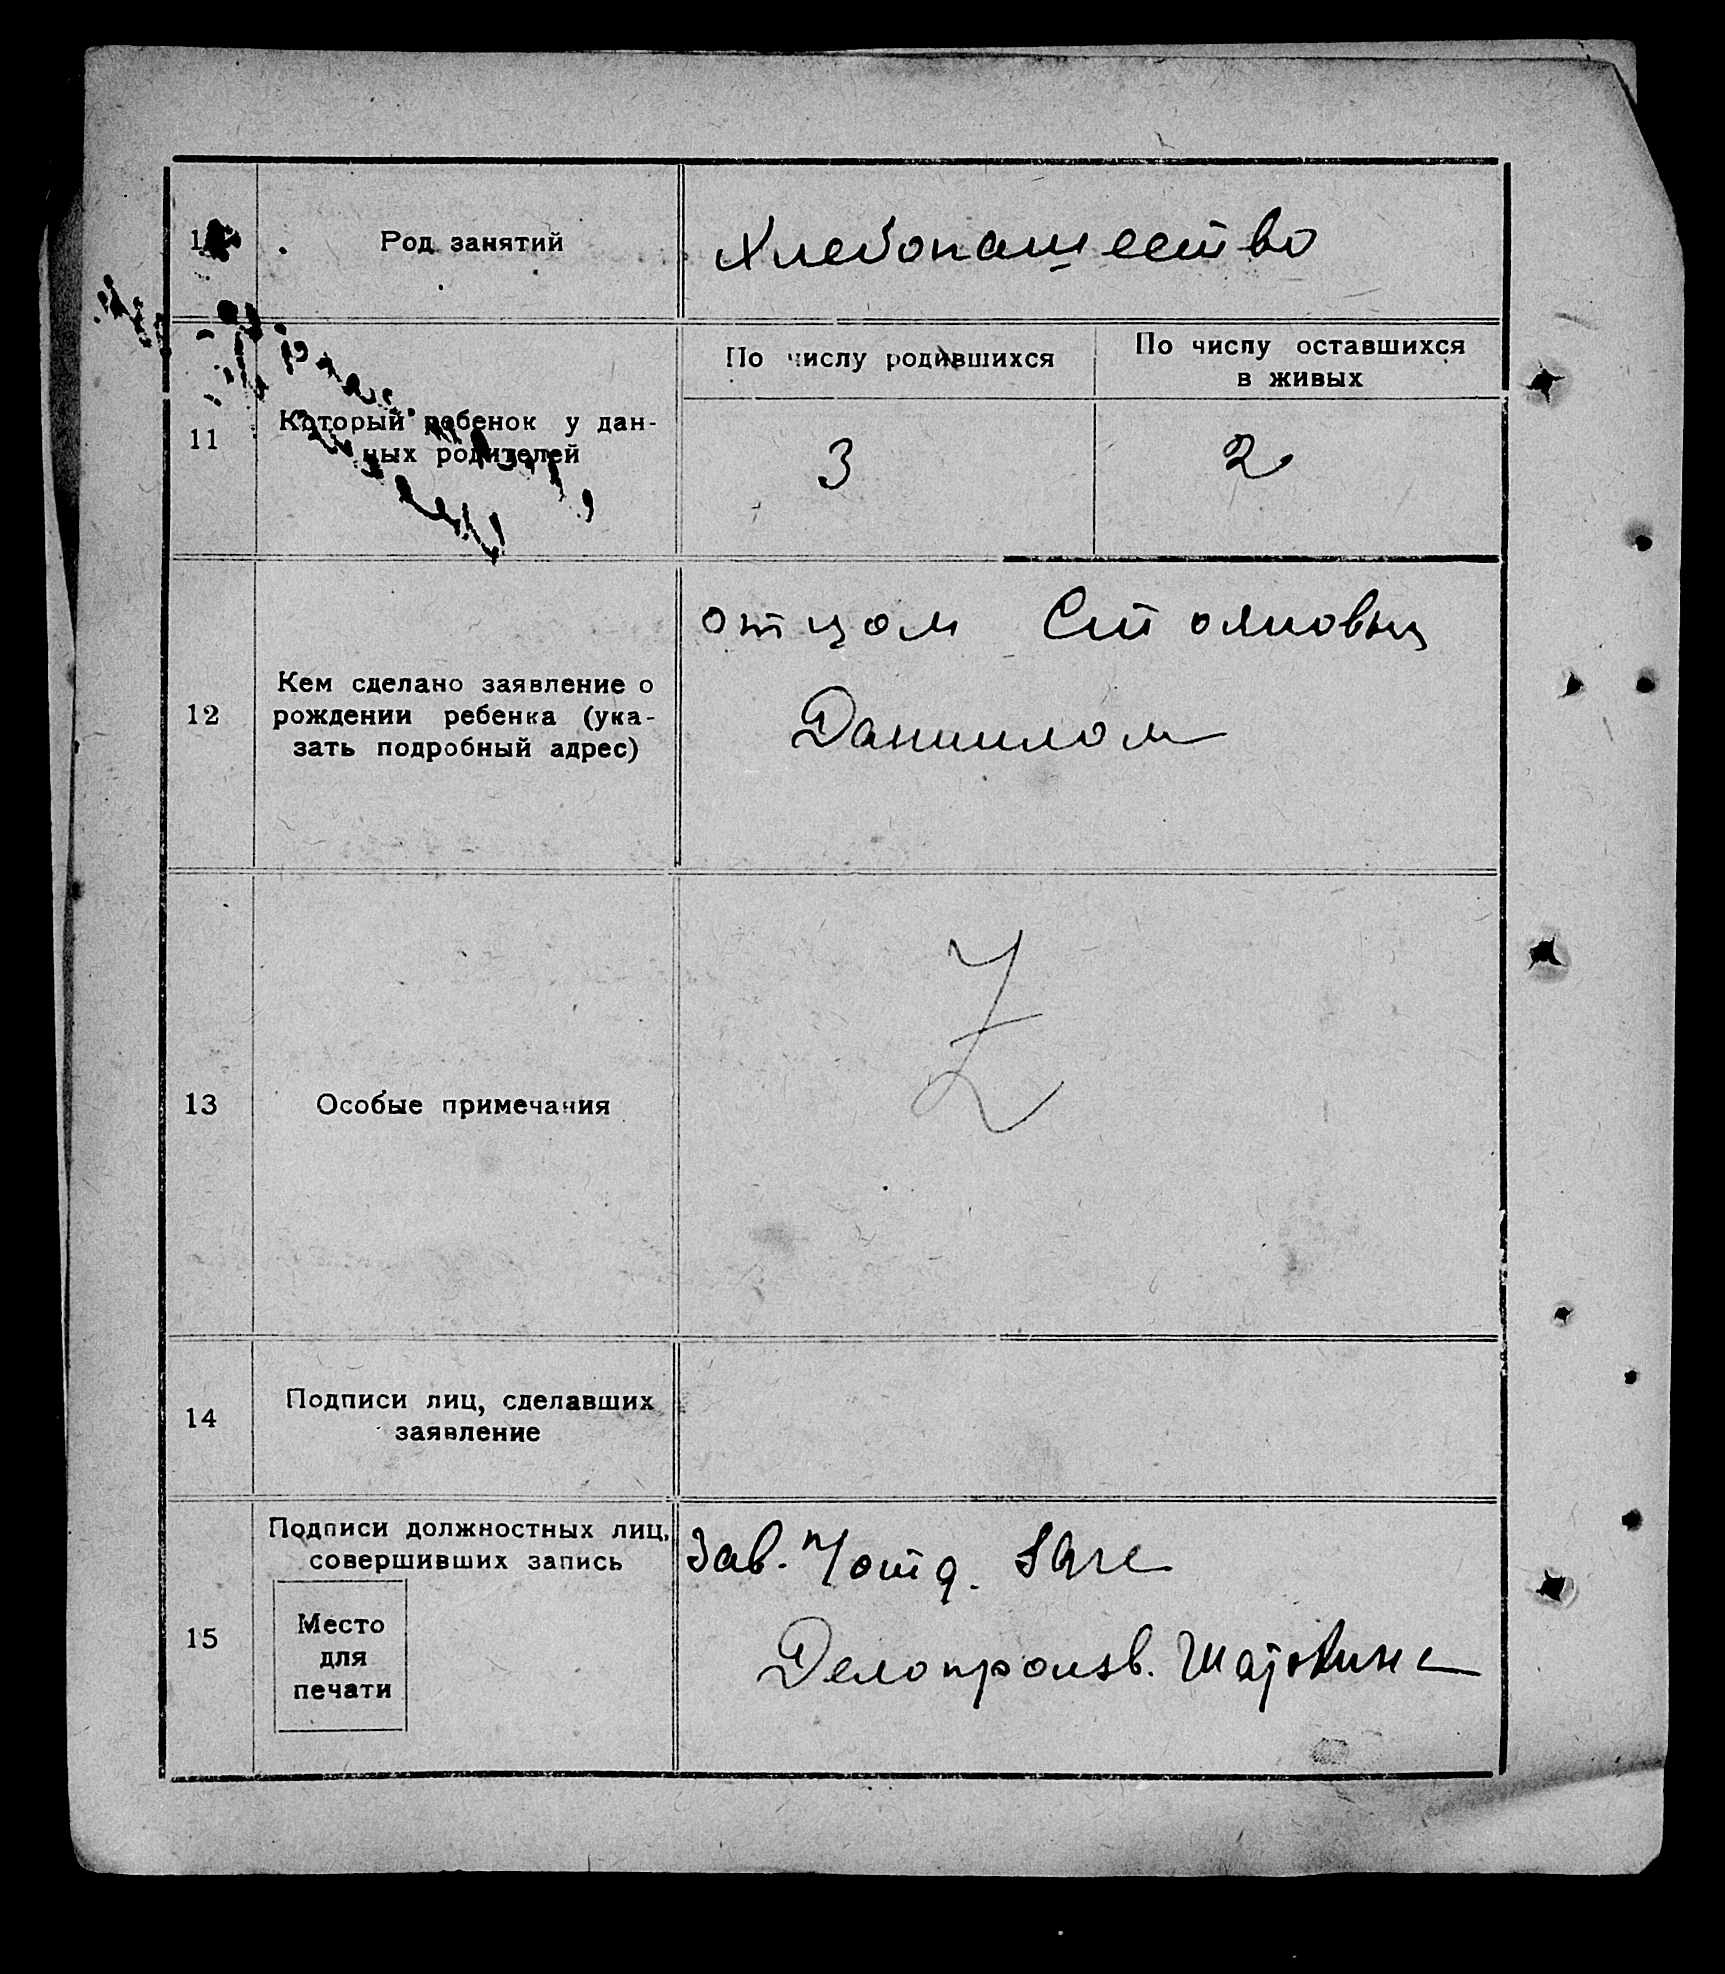 Род занятий
Хлебопашество
11
Который ребенок у дан-
ных родителей
По числу родившихся
3
По числу оставшихся
в живых
2
12
Кем сделано заявление о
рождении ребенка (ука-
зать подробный адрес)
отцом Стояновым
Даниилом
13
Особые примечания
Z
14
Подписи лиц, сделавших
заявление
15
Подписи должностных лиц,
совершивших запись
Место
для
печати
Зав.
Делопроизв.